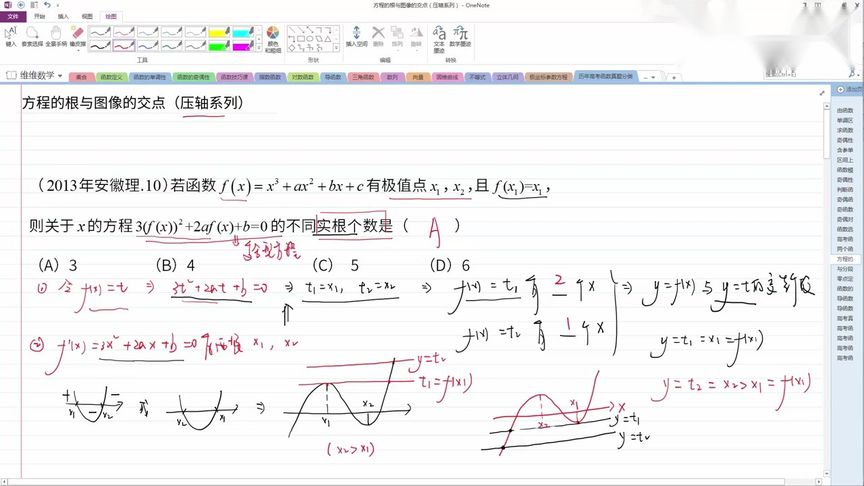 方程的根与图像的交点（压轴系列） - OneNote
文件 开始 插入 视图 绘图
键入 套索选择 全景手柄 橡皮擦
颜色和粗细
插入空间 删除 排列 旋转
文本墨迹 数学墨迹
工具 形状 编辑 转换
维维数学 集合 函数定义 函数的单调性 函数的奇偶性 函数技巧课 指数函数 对数函数 导函数 三角函数 数列 向量 圆锥曲线 不等式 立体几何 极坐标参数方程 历年高考函数真题分类
方程的根与图像的交点（压轴系列）
（2013年安徽理.10）若函数 f(x)=x³+ax²+bx+c 有极值点 x₁，x₂，且 f(x₁)=x₁，
则关于 x 的方程 3(f(x))²+2af(x)+b=0 的不同实根个数是（ A ）
复合型方程
（A）3 （B）4 （C） 5 （D）6
① 令 f(x)=t ⇒ 3t²+2at+b=0 ⇒ t₁=x₁, t₂=x₂ ⇒ f(x)=t₁ 有 2 个x ⇒ y=f(x) 与 y=t的
f(x)=t₂ 有 1 个x
y=t₁=x₁=f(x₁)
② f'(x)=3x²+2ax+b=0 有两根 x₁, x₂
y=t₂=x₂>x₁=f(x₁)
y=t₂
t₁=f(x₁)
+ − x₁ x₂ 或 x₂ x₁ ⇒ x₁ x₂
(x₂>x₁)
x₁ x₂ x
y=t₁
y=t₂
添加页
由函数
单调区
求函数
奇偶性
含参单
区间上
函数模
奇偶性
判断函
奇偶函
奇函数
奇偶对
函数迭
高考函
两个函
方程的
与分段
零点定
函数的
导函数
导函数
高考真
高考函
高考函
高考函